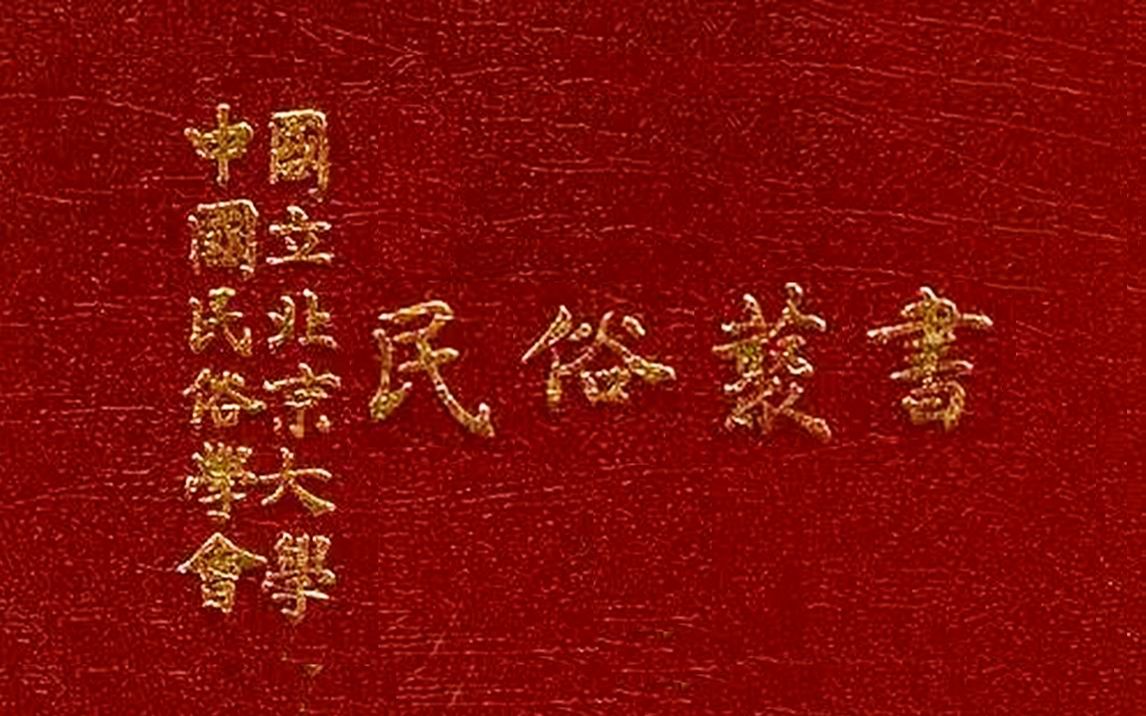 國立北京大學
中國民俗學會
民俗叢書